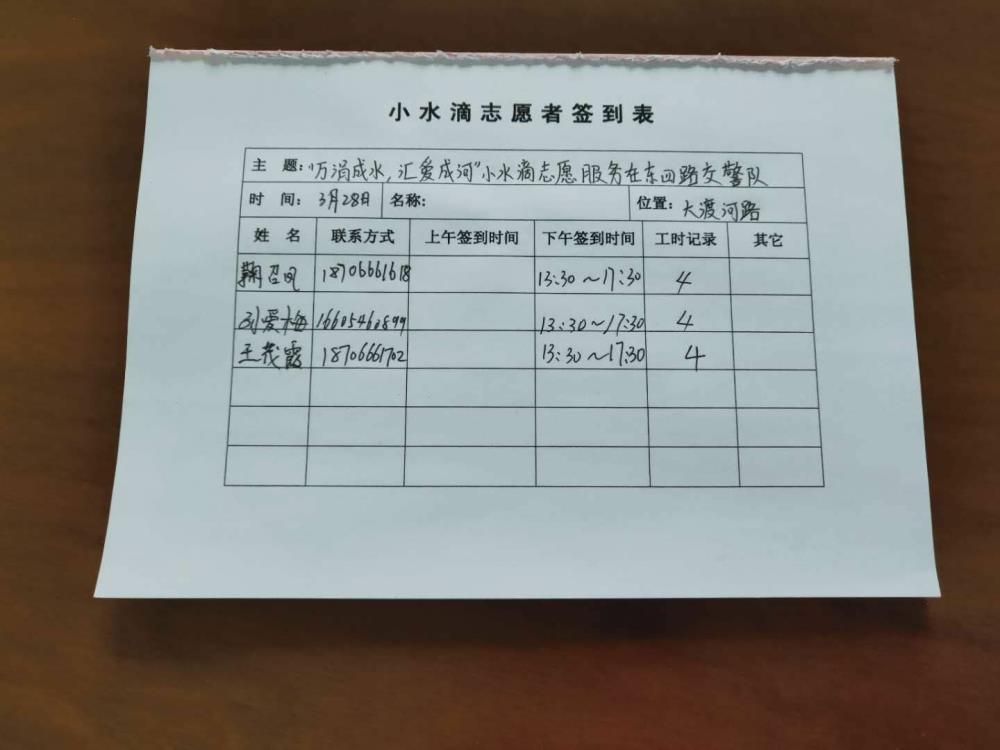 小水滴志愿者签到表
主 题: "万涓成水,汇爱成河"小水滴志愿服务在东四路交警队
时 间: 3月28日 名称: 位置: 大渡河路
姓 名 联系方式 上午签到时间 下午签到时间 工时记录 其它
鞠召凤 18706661618 13:30～17:30 4
刘爱梅 16605460899 13:30～17:30 4
王茂霞 18706661702 13:30～17:30 4